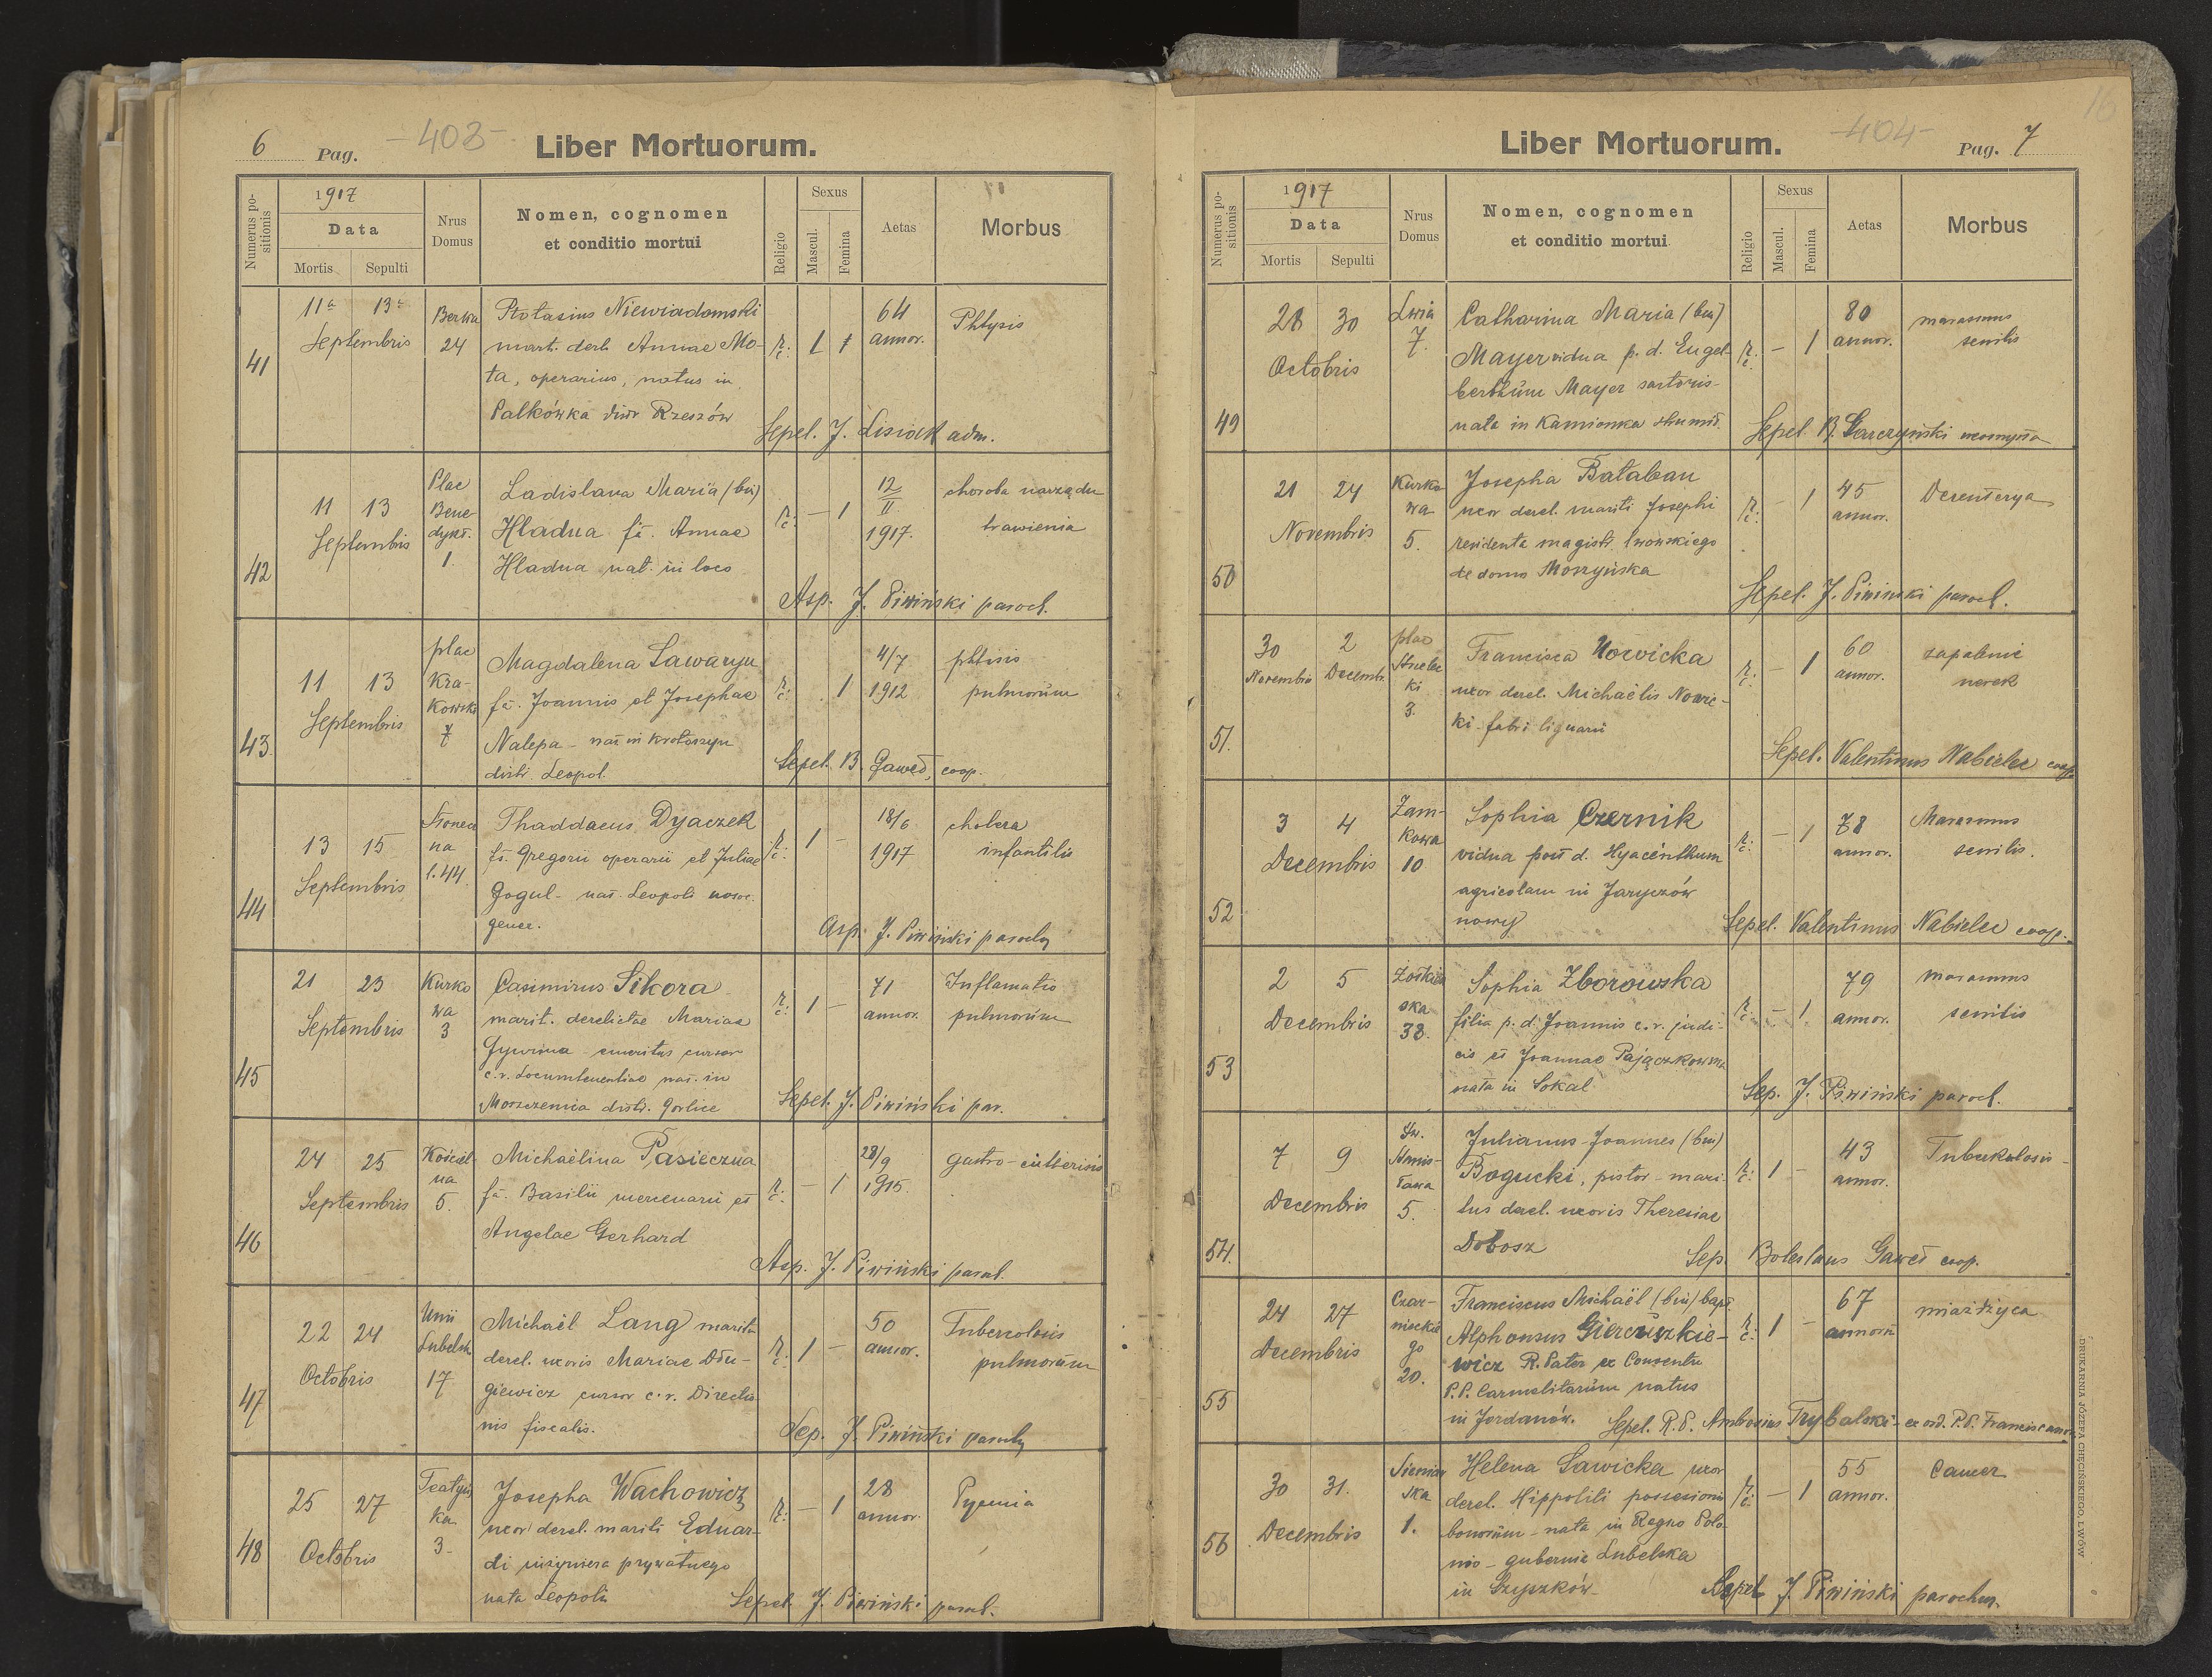 6 Pag. -403- Liber Mortuorum.
Numerus positionis
1917
Data
Mortis Sepulti
Nrus Domus
Nomen, cognomen
et conditio mortui
Religio
Sexus
Mascul. Femina
Aetas
Morbus
41
11a 13a
Septembris
Berka
24
Niewiadomski
mart. derel. Annae Mo-
ta, operarius, natus in
Palkówka distr Rzeszów
r. c.
1
64
annor.
Phtysis
Sepel. J. Lisiack adm.
42
11 13
Septembris
Plac
Bene-
dykt.
1.
Ladislaua Maria (bin)
Hladua fa. Annae
Hladua nat. in loco
r. c.
- 1
12/II
1917.
choroba narządu
trawienia
Asp. J. Piwiński paroch.
43
11 13
Septembris
plac
Kra-
kowski
7
Magdalena Lawaryn
fa. Joannis et Josephae
Nalepa - nat in Krotoszyn
distr. Leopol.
r. c.
1
4/7
1912
phtisis
pulmorum
Sepel. B. Gaweł, coop.
44
13 15
Septembris
Słonecz
na
l. 44.
Thaddaeus Dyaczek
fs. Gregorii operarii et Juliae
Gogul - nat. Leopoli nosoc.
gener.
r. c.
1 -
18/6
1917
cholera
infantilis
Asp. J. Piwiński parochy
45
21 23
Septembris
Kurko
wa
3
Casimirus Sikora
marit. derelictae Mariae
emeritus cursor
c. r. Locumtenentiae nat. in
Moszczenica distr. Gorlice
r. c.
1 -
71
annor.
Inflamatio
pulmorum
Sepel. J. Piwiński par.
46
24 25
Septembris
Kościel-
na
5.
Michaëlina Pasieczna
fa. Basilii mercenarii et
Angelae Gerhard
r. c.
- 1
28/9
1915.
gastro-
Asp. J. Piwiński paroch.
47
22 24
Octobris
Unii
Lubelsk.
17
Michaël Lang marit
derel. uxoris Mariae Dłu-
giewicz cursor c. r. Directio
nis fiscalis.
r. c.
1 -
50
annor.
Tubercolosis
pulmorum
Sep. J. Piwiński parochy
48
25 27
Octobris
Teatyń
ka
3-
Josepha Wachowicz
uxor derel. mariti Eduar-
di inżyniera prywatnego
nata Leopoli
r. c.
- 1
28
annor.
Pyemia
Sepel. J. Piwiński paroch.
Liber Mortuorum. -404- Pag. 7
16
Numerus positionis
1917
Data
Mortis Sepulti
Nrus Domus
Nomen, cognomen
et conditio mortui
Religio
Sexus
Mascul. Femina
Aetas
Morbus
49
28 30
Octobris
Lwia
7.
Catharina Maria (bin)
Mayer vidua p. d. Engel-
berthum Mayer sartoris-
nata in Kamionka strumił.
r. c.
- 1
80
annor.
marasmus
senilis
Sepel B.
50
21 24
Novembris
Kurko
wa
5.
Josepha Bałaban
uxor derel. mariti Josephi
rewidenta magistr. lwowskiego
de domo Moszyńska
r. c.
- 1
45
annor.
Desenterya
Sepel. J. Piwiński paroch.
51.
30 2
Novembris Decembr.
plac
Strzelec
ki
3.
Francisca Nowicka
uxor derel. Michaëlis Nowic-
ki - fabri lignarii
r. c.
- 1
60
annor.
zapalenie
nerek
Sepel. Valentinus Nabielec coop.
52
3 4
Decembris
Zam-
kowa
10
Sophia Czernik
vidua post d. Hyacinthum
agricolam in Jaryczów
nowy
r. c.
- 1
78
annor.
Marasmus
senilis.
Sepel. Valentinus Nabielec coop.
53
2 5
Decembris
Żółkiew
ska
38.
Sophia Zborowska
filia p. d. Joannis c. r. judi-
cis et Joannae Pajączkowska
nata in Sokal
r. c.
- 1
79
annor.
marasmus
senilis
Sep. J. Piwiński paroch.
54.
7 9
Decembris
Św.
Stanis-
ława
5.
Julianus Joannes (bin)
Bogucki, pistor - mari-
tus derel. uxoris Theresiae
Dobosz
r. c.
1 -
43
annor.
Tuberkulosis
Sep. Boleslaus Gaweł coop.
55
24 27
Decembris
Czar-
nieckie
go
20.
Franciscus Michaël (bin) bapt.
Alphonsus Gierczuszkie-
wicz R. Pater ex Conventu
P.P. Carmelitarum natus
in Jordanów.
r. c.
1 -
67
annorum
miażdżyca
Sepel. R. P. Ambrosius Trybalski - ex ord. P.P. Franciscanor.
56
30 31.
Decembris
Sieniaw
ska
1.
Helena Sawicka uxor
derel. Hippoliti possesionis
bonorum - nata in Regno Polo-
nio - gubernie Lubelska
in
r. c.
- 1
55
annor.
Cancer
Sepel J. Piwiński parochus.
DRUKARNIA JÓZEFA CHĘCIŃSKIEGO, LWÓW